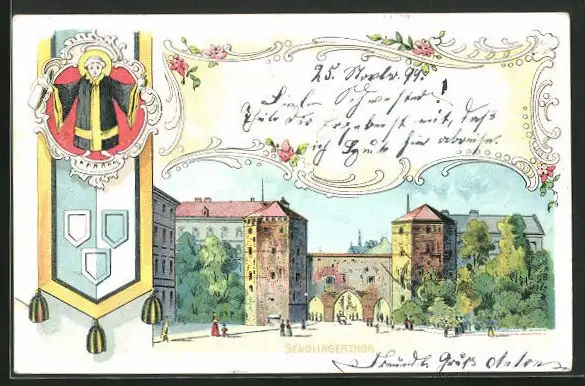 25. Novbr. 99.
Liebe Schwester!
Theile Dir ergebenst mit, daß
ich heute hier abreise.
SENDLINGERTHOR
Freundl. Gruß Anton